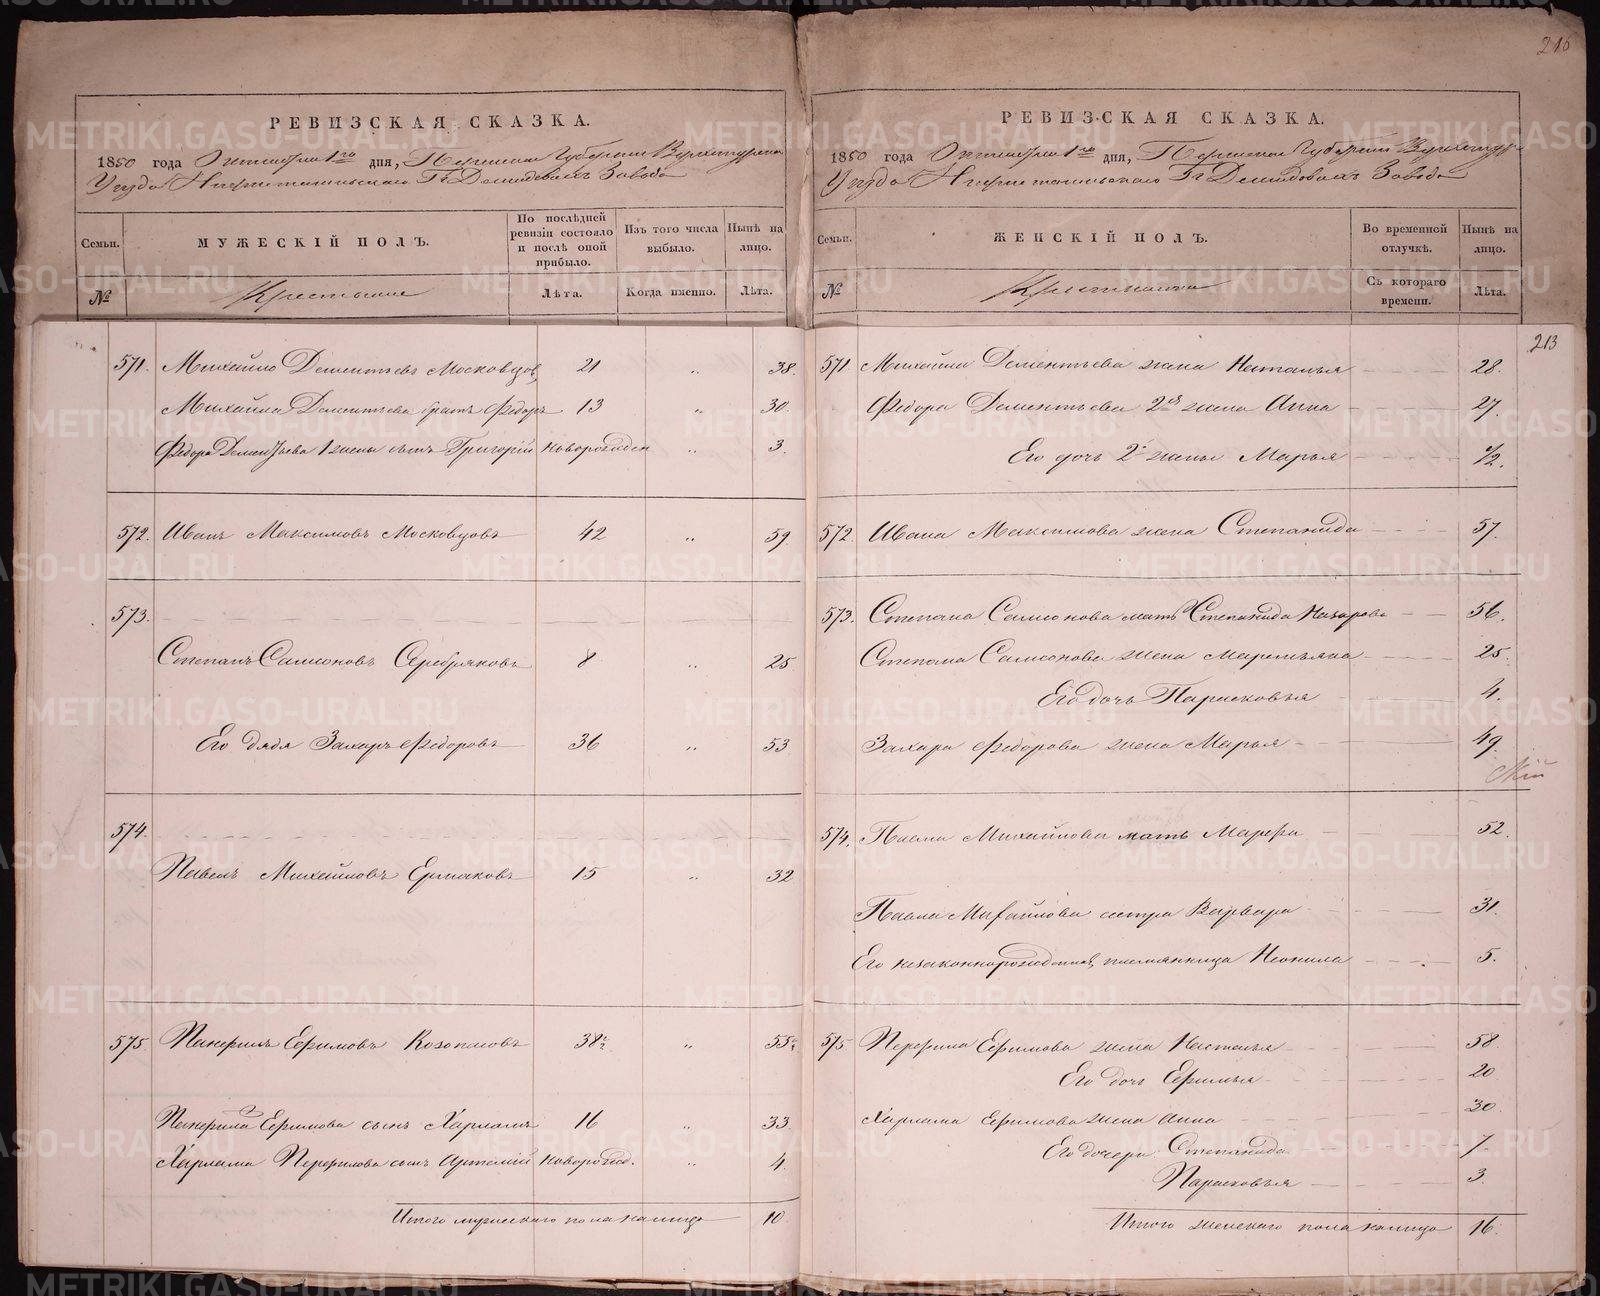 216
РЕВИЗСКАЯ СКАЗКА.
1850 года Октября 1го дня, Пермской Губернии Верхотурска
Уезда Нижнетагильскаго Гг Демидовыхъ Завода
Семьи. МУЖЕСКІЙ ПОЛЪ. По послѣдней ревизіи состояло и послѣ оной прибыло. Изъ того числа выбыло. Нынѣ на лицо.
№ Крестьяне Лѣта. Когда именно. Лѣта.
571. Михайло Дементьевъ Московцовъ 21 „ 38.
Михайла Дементьева братъ Федоръ 13 „ 30.
Федора Дементьева 1 жены сынъ Григорій новорожден „ 3.
572. Иванъ Максимовъ Московцовъ 42 „ 59.
573.
Степанъ Самсоновъ Серебряковъ 8 „ 25
Его дядя Захаръ Федоровъ 36 „ 53
574.
Павелъ Михайловъ Ермаковъ 15 „ 32
575. Панфилъ Ефимовъ Козопасовъ 38 „ 55
Панфила Ефимова сынъ Харламъ 16 „ 33
Харлама Перфилова сынъ Артемій новорожд. „ 4.
Итого мужескаго пола налицо 10.
РЕВИЗСКАЯ СКАЗКА.
1850 года Октября 1го дня, Пермской Губерніи Верхотур
Уезда Нижнетагильскаго Гг Демидовыхъ Завода
Семьи. ЖЕНСКІЙ ПОЛЪ. Во временной отлучкѣ. Нынѣ на лицо.
№ Крестьянки Съ котораго времени. Лѣта.
213
571 Михайла Дементьева жена Наталья 28.
Федора Дементьева 2я жена Анна 27.
Его дочь 2й жены Марья 1/2.
572 Ивана Максимова жена Степанида 57.
573. Степана Самсонова мать Степанида Назарова 56.
Степана Самсонова жена Маремьяна 25.
Его дочь Парасковья 4.
Захара Федорова жена Марья 49.
574. Павла Михайлова мать Марфа 52.
Павла Михайлова сестра Варвара 31.
Его незаконнорожденная племянница Неонила 5.
575 Перфила Ефимова жена Настасья 58
Его дочь Ефимья 20
Харлама Ефимова жена Анна 30.
Его дочери Степанида 7
Парасковья 3.
Итого женскаго пола налицо 16.
METRIKI.GASO-URAL.RU